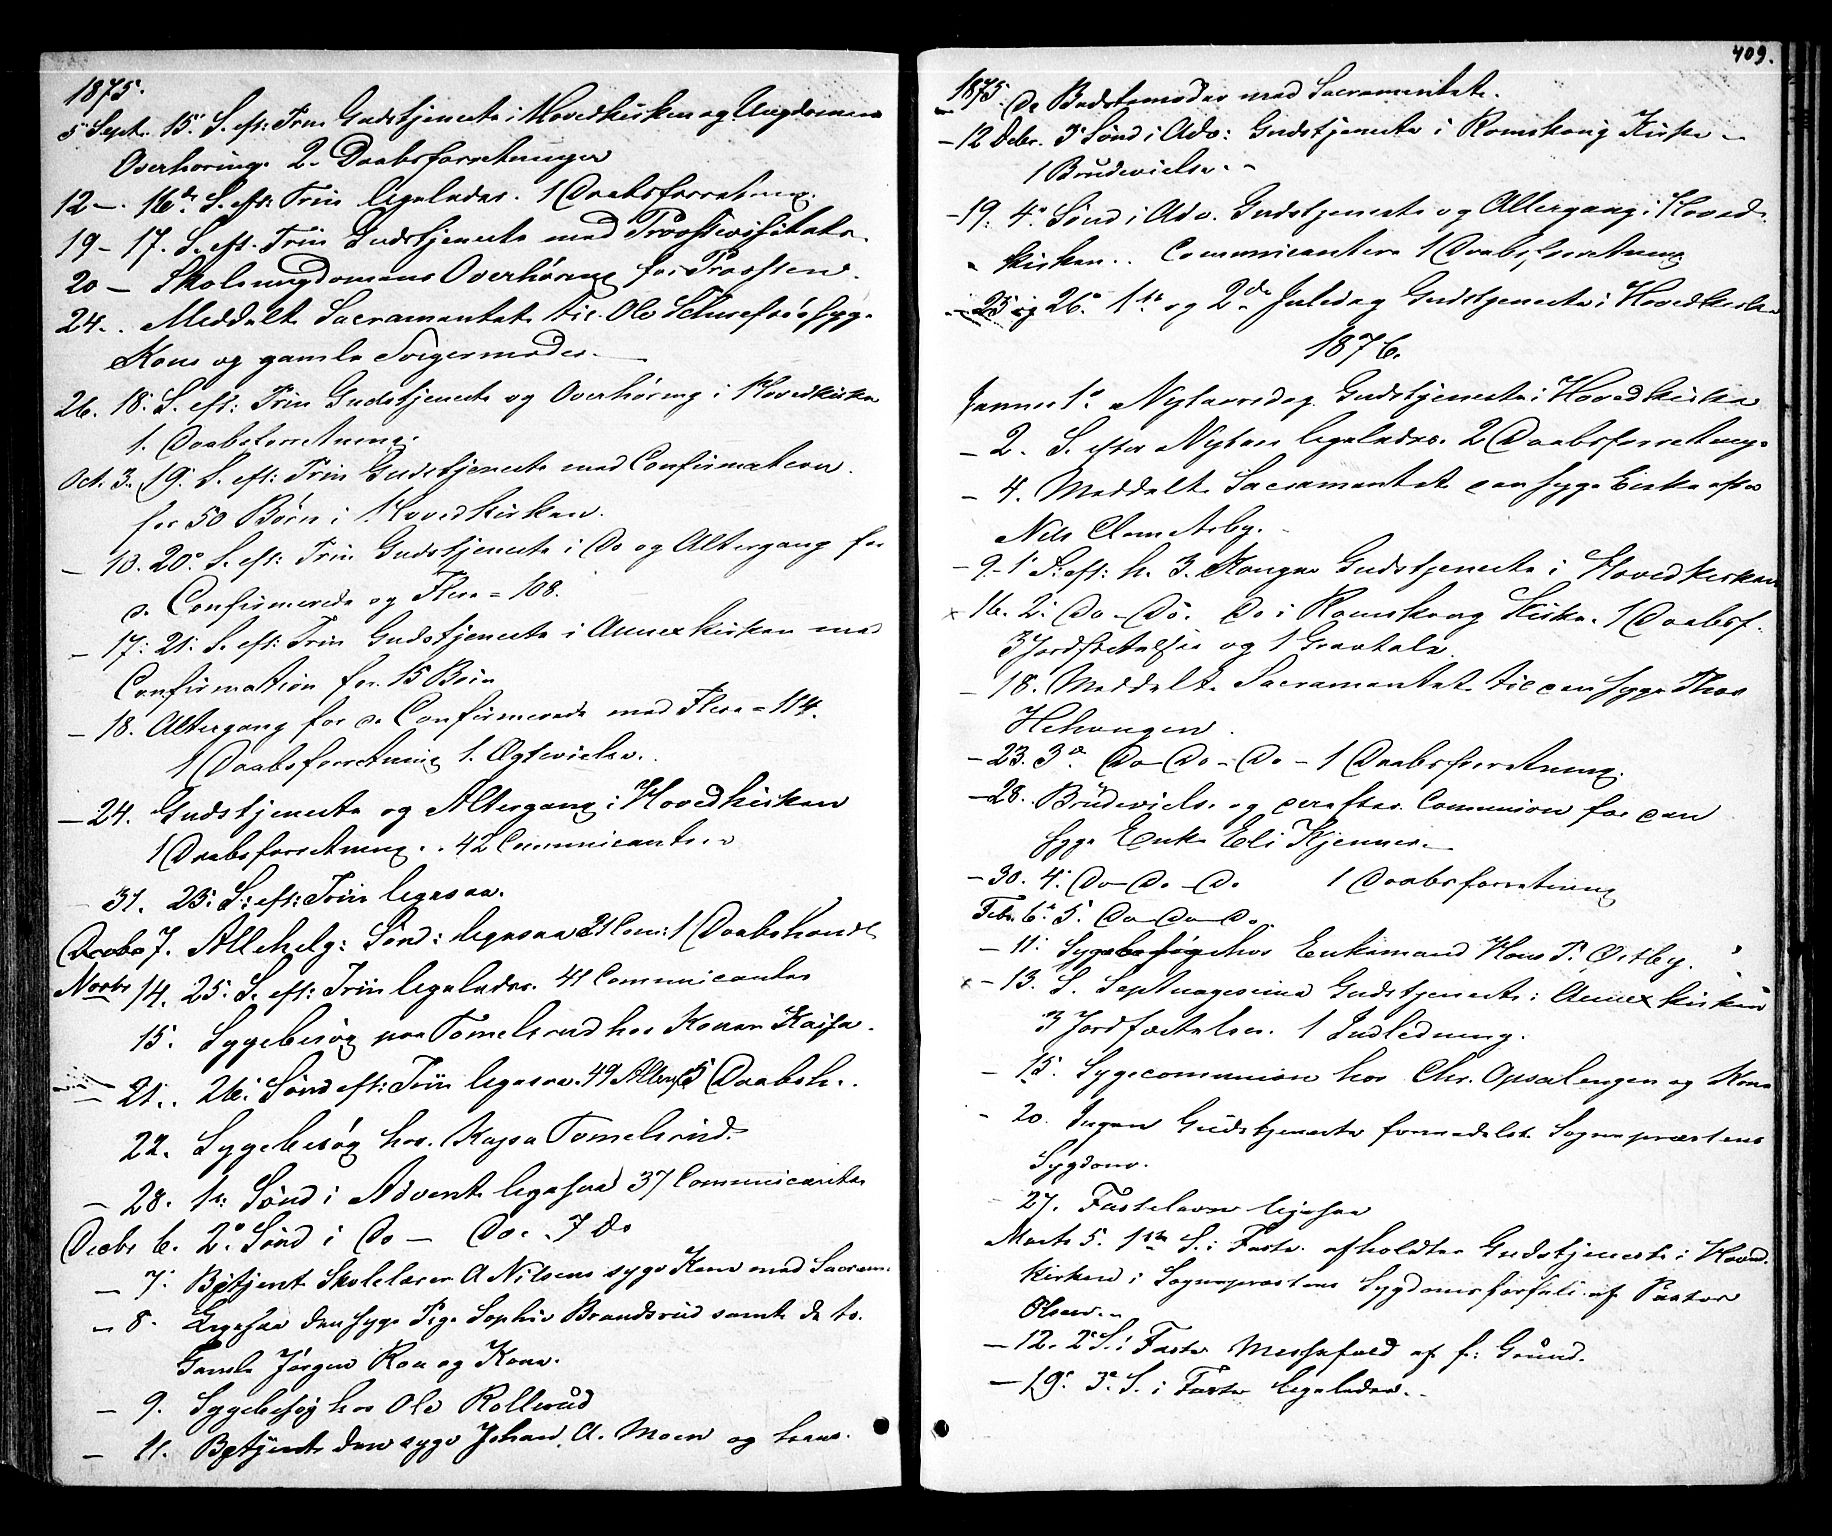 1875.
5 Sept. 15. S. eft: Trin Gudstjeneste i Hovedkirken og Ungdommens
Overhøring. 2. Daabsforretninger
12 –. 16de S. eft: Trin ligeledes. 1 Daabsforretning.
19 – 17. S. eft. Trin Gudstjeneste med Provstevisitats.
20 – Skoleungdommens Overhøring for Provsten.
24. . Meddelt Sacramentet til Ole syge
Kone og gamle Svigermoder. —
26. 18. S. eft: Trin Gudstjeneste og Overhøring i Hovedkirken
1. Daabsforretning.
Oct. 3. 19. S. eft: Trin Gudstjeneste med Confirmation.
for 50 Børn i Hovedkirken.
– 10. 20. S. eft: Trin Gudstjeneste i Do og Altergang for
d. Confirmerede og Flere = 108.
– 17. 21. S. eft: Trin Gudstjeneste i Annexkirken med
Confirmation for 15 Børn
– 18. Altergang for de Confirmerede med Flere = 114.
1 Daabsforretning 1. Ægtevielse.
– 24. Gudstjeneste og Altergang i Hovedkirken
1 Daabsforretning. . 42 Communicanter.
– 31. 23. S. eft: Trin ligesaa.
7. Allehelg: Sønd: ligesaa 21 Com: 1 Daabshandl
Novbr 14. 25. S. eft: Trin ligeledes. 41 Communicanter
15. Sygebesøg paa Tomelsrud hos Konen Kajsa.
– 21. . 26. Sønd eft: Trin ligesaa. 49 Alterg. 5 Daabsh. .
22. Sygebesøg hos. Kajsa Tomelsrud.
– 28. 1ste Sønd i Advent ligesaa 37 Communicanter
Decbr 6. 2. Sønd i Do – Do. . 7 do
– 7. Betjent Skolelærer A Nilsens syge Kone med Sacram.
– 8. Ligesaa den syge Pige Sophie Brandsrud samt de to.
Gamle Jørgen Roa og Kone.
– 9. Sygebesøg hos Ole Rollerud
– 11. Betjent den syge Johan A. Moen og hans.
409.
1875. Do med Sacramentet.
– 12 Debr. 3 Sønd i Adv: Gudstjeneste i Romskoug Kirke –
1 Brudevielse. –
– 19. 4. Sønd i Adv. Gudstjeneste og Altergang i Hoved-
kirken . . Communicantere 1 Daabsforretning
– 25 og 26. 1ste og 2den Juledag Gudstjeneste i Hovedkirken
1876.
Januar 1. Nytaarsdag Gudstjeneste i Hovedkirken
– 2. S. efter Nytaar ligeledes. 2 Daabsforretning.
– 4. Meddelt Sacramentet den syge Enke efter
Nils Clemetsby. –
– 9. 1 S. eft: h. 3. Konger Gudstjeneste i Hovedkirken
x 16. 2. Do – Do. Do i Romskoug Kirke. 1 Daabsf.
3 Jordfæstelser og 1 Gravtale.
– 18. Meddelt Sacramentet til den syge Thor
.
– 23. 3. Do – Do – Do – 1 Daabsforretning.
– 28. Brudevielse og derefter Communion for den
syge Enke Eli Kjenner. –
– 30. 4. Do – Do – Do 1 Daabsforretning
Febr. 6. 5. Do – Do – Do
– 11. Sygebesøg hos Enkemand Hans P. Østby.
x – 13. S. Septuagesima Gudstjeneste i Annexkirken
3 Jordfæstelser. 1 Indledning.
– 15. Sygecommunion hos Chr. Opsalengen og Kone
– 20. Ingen Gudstjeneste formedelst Sogneprestens
Sygdom.
27. Fastelavn ligesaa
Marts 5. 1ste S. i Faste afholdtes Gudstjeneste i Hoved-
kirken i Sognepræstens Sygdomsforfald af Pastor
Olsen. –
– 12. 2 S. i Faste Messefald af s: Grund.
– 19. 3. S. i Faste ligeledes. –